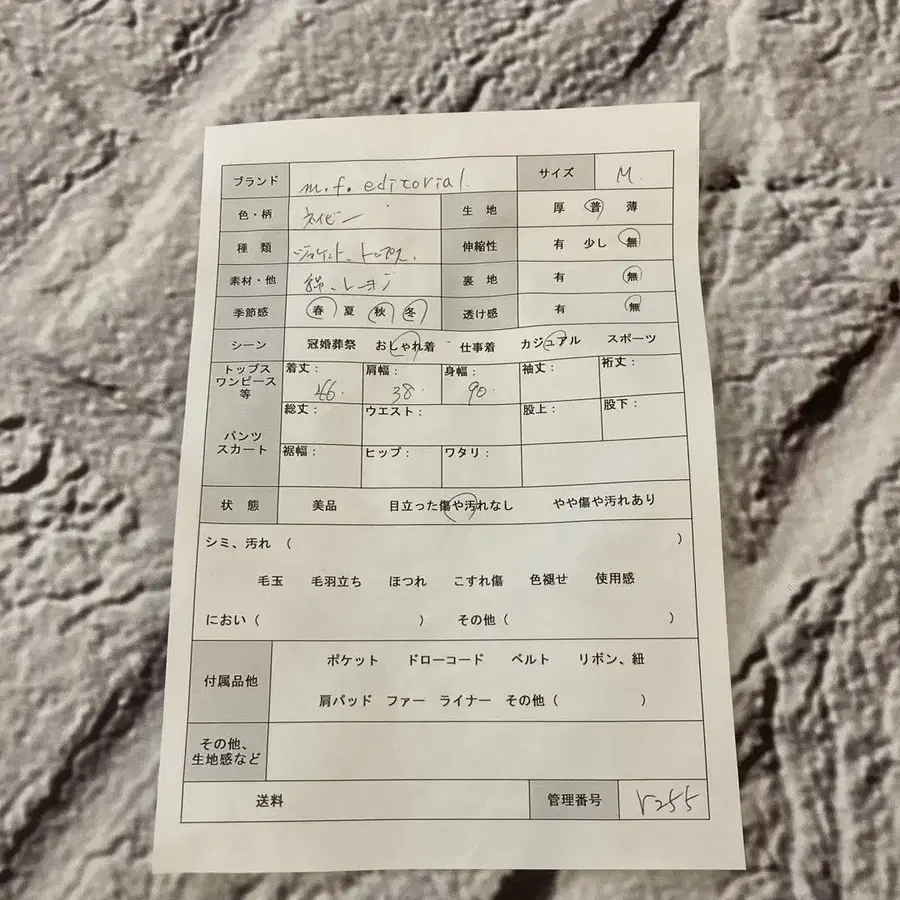 ブランド m.f.editorial. サイズ M.
色・柄 ネイビー 生地 厚 普 薄
種類 ジャケット、トップス. 伸縮性 有 少し 無
素材・他 綿、レーヨン 裏地 有 無
季節感 春 夏 秋 冬 透け感 有 無
シーン 冠婚葬祭 おしゃれ着 仕事着 カジュアル スポーツ
トップス
ワンピース
等
着丈: 肩幅: 身幅: 袖丈: 裄丈:
38. 90.
パンツ
スカート
総丈: ウエスト: 股上: 股下:
裾幅: ヒップ: ワタリ:
状態 美品 目立った傷や汚れなし やや傷や汚れあり
シミ、汚れ ( )
毛玉 毛羽立ち ほつれ こすれ傷 色褪せ 使用感
におい ( ) その他 ( )
付属品他
ポケット ドローコード ベルト リボン、紐
肩パッド ファー ライナー その他 ( )
その他、
生地感など
送料 管理番号 r255